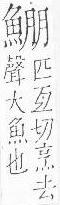 鰳匹亙切烹去
聲大魚也